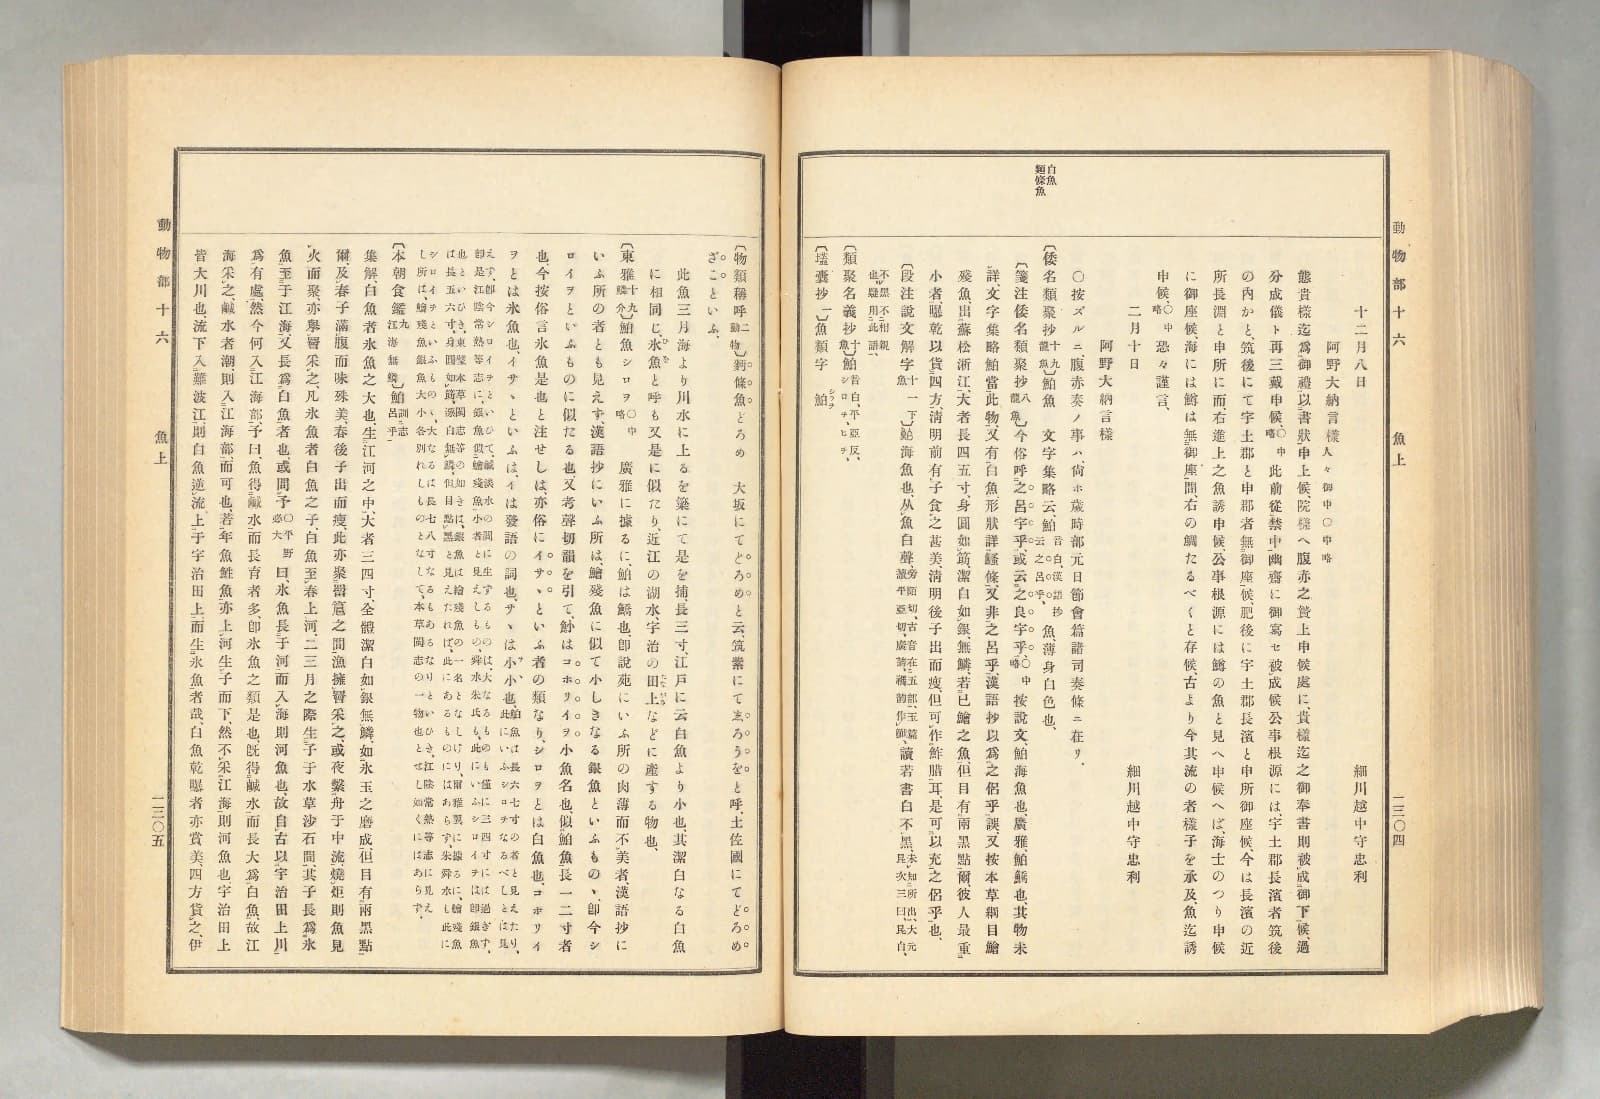 動物部十六　魚上　一三〇四
十二月八日　細川越中守忠利
阿野大納言樣人々御中〇中略
態貴樣迄爲御禮以書狀申上候、院樣へ腹赤之贄上申候處に、貴樣迄之御奉書則被成御下候、過
分成儀ト再三戴申候、〇中略此前從禁中幽齋に御寫せ被成候公事根源には、宇土郡長濱者筑後
の內かと、筑後にて宇土郡と申郡者無御座候、肥後に宇土郡長濱と申所御座候、今は長濱の近
所長淵と申所に而右進上之魚誘申候、公事根源には鱒の魚と見へ申候へば、海士のつり申候
に御座候、海には鱒は無御座間、右の鯛たるべくと存候、古より今其流の者樣子を承及、魚迄誘
申候、〇中略恐々謹言、
二月十日　細川越中守忠利
阿野大納言樣
〇按ズルニ腹赤奏ノ事ハ、尙ホ歲時部元日節會篇諸司奏條ニ在リ、
白魚
麵條魚
〔倭名類聚抄十九龍魚〕鮊魚　文字集略云、鮊音白、漢語抄云之呂乎、魚、薄身白色也、
〔箋注倭名類聚抄八龍魚〕今俗呼之呂字乎、或云之良字乎、〇中略按說文、鮊海魚也、廣雅、鮊鱎也、其物未
詳、文字集略鮊當此物、又有白魚形狀詳鱃條、又非之呂乎、漢語抄以爲之侶乎誤、又按本草綱目鱠
殘魚、出蘇松浙江、大者長四五寸、身圓如筯、潔白如銀、無鱗、若已鱠之魚、但目有兩黑點爾、彼人最重
小者、曝乾以貨四方、淸明前有子、食之甚美、淸明後子出而瘦、但可作鮓腊耳、是可以充之侶乎也、
〔段注說文解字十一下魚〕鮊海魚也、从魚白聲、
讀若書白不黑、
不黑不相親也、疑用此語、
〔類聚名義抄十魚〕鮊音白、平、亞反、シロヲ、ヒヲ、
〔壒囊抄一〕魚類字　鮊シラヲ
〔物類稱呼二動物〕麵條魚どろめ　大坂にてどろめと云、筑紫にてゑろうをと呼、土佐國にてどろめ
ざこといふ、
此魚三月海より川水に上るを簗にて是を捕、長三寸、江戶に云白魚より小也、其潔白なる白魚
に相同じ、氷魚と呼も又是に似たり、近江の湖水宇治の田上などに產する物也、
〔東雅十九鱗介〕鮊魚シロヲ〇中略　廣雅に據るに、鮊は鱎也、卽說苑にいふ所の肉薄而不美者、漢語抄に
いふ所の者とも見えず、漢語抄にいふ所は、鱠殘魚に似て小しきなる銀魚といふもの、卽今シ
ロイヲといふものに似たる也、又考聲切韻を引て、魦はコホリイヲ小魚名也、似鮊魚長一二寸者
也、今按俗言氷魚是也と注せしは、亦俗にイサヾといふ者の類なり、シロヲとは白魚也、コホリイ
ヲとは氷魚也、イサヾといふは、イは發語の詞也、サヾは小小也、
鮊魚は長六七寸の者と見えたり、此にいふシロヲなるべしとは見
えず、卽今シロイヲといひて、鹹淡水の間に生するものは、大なるものも僅に三四寸には過ぎず、
卽是江陰常熟等志に、銀魚似鱠殘魚小者と見えしもの、舜水朱氏も、此にいふシロイヲは卽銀魚
也といひき、東璧本草閩志等の如きは、銀魚は鱠殘魚の一名となしけり、爾雅翼に據るに、鱠殘魚
は長五六寸、身圓如筯、潔白無鱗、似目點黑と見えたれば、此にあるものにはあらず、朱舜水も此に
シロイヲといふもの、大なるは長七八寸なるもあるなりといひき、江陰常熟等志に見え
し所は、鱠殘魚銀魚大小各別れしものとなして、本草閩志の一物也とせし如くにはあらず、
〔本朝食鑑九江海無鱗〕鮊訓志呂乎
集解、白魚者氷魚之大也、生江河之中、大者三四寸、全體潔白如銀、無鱗、如氷玉之磨成、但目有兩黑點
爾、及春子滿腹而味殊美、春後子出而瘦、此亦聚罾簄之間、漁擁罾采之、或夜繫舟于中流、燒炬則魚見
火而聚、亦擧罾采之、凡氷魚者白魚之子、白魚至春上河、二三月之際生子于水草沙石間、其子長爲氷
魚、至于江海、又長爲白魚者也、或問予〇平野必大曰、氷魚長于河而入海則河魚也、故自古以宇治田上川
爲有處、然今何入江海部、予曰、魚得鹹水而長育者多、卽氷魚之類是也、旣得鹹水而長大爲白魚、故江
海采之、鹹水者潮則入江海部、而可也、若年魚鮏魚亦上河生子而下、然不采江海則河魚也、宇治田上
皆大川也、流下入難波江、則白魚逆流上于宇治田上而生氷魚者哉、白魚乾曝者亦賞美、四方貨之、伊
動物部十六　魚上　一三〇五